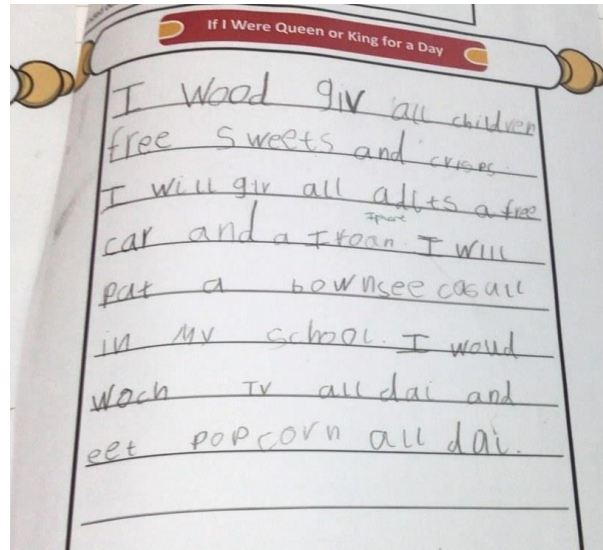 If I Were Queen or King for a Day
I wood giv all children
free sweets and crisps.
I will giv all adlts a free
car and a Ifoan. I will
pat a bownsee casall
in my school. I woud
woch TV all dai and
eet popcorn all dai.